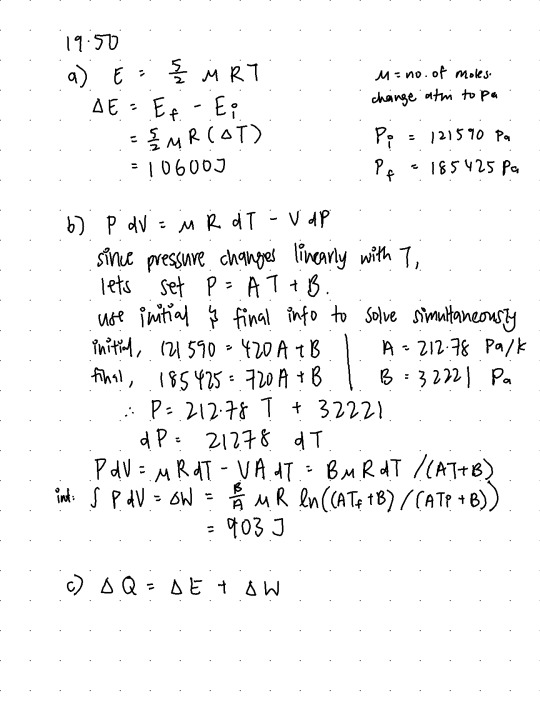 19.50
a) E = 5/2 μRT
μ = no. of moles.
change atm to Pa
ΔE = E_f - E_i
= 5/2 μR(ΔT)
P_i = 121590 Pa
= 10600J
P_f = 185425 Pa
b) P dV = μ R dT - V dP
since pressure changes linearly with T,
lets set P = AT + B.
use initial & final info to solve simultaneously
initial, 121590 = 420A + B | A = 212.78 Pa/K
final, 185425 = 720A + B | B = 32221 Pa
∴ P = 212.78 T + 32221
dP = 21278 dT
PdV = μRdT - VAdT = BμRdT /(AT+B)
int: ∫ PdV = ΔW = B/A μR ln((AT_f +B) / (AT_i +B))
= 903 J
c) ΔQ = ΔE + ΔW